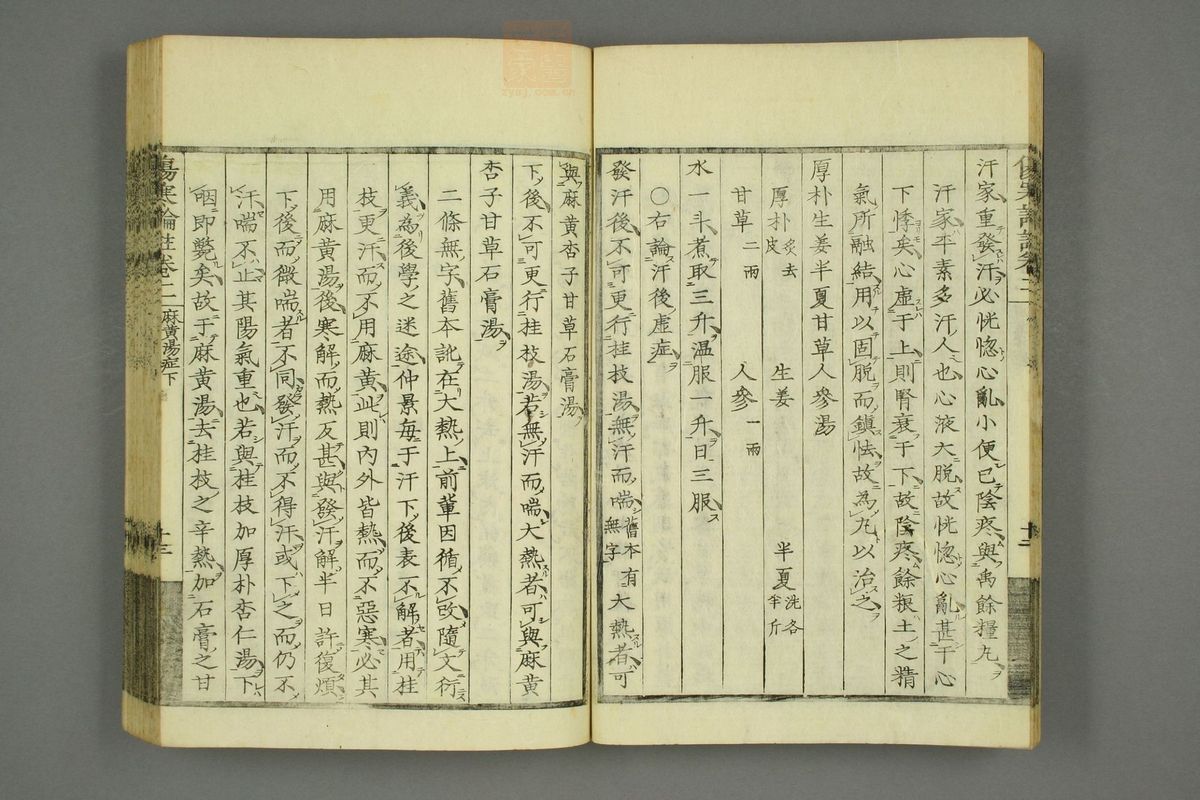 汗家重發汗必恍惚心亂小便已陰疼與禹餘糧丸
汗家平素多汗人也心液大脫故恍惚心亂甚于心
下悸矣心虛于上則腎衰于下故陰疼餘粮土之精
氣所融結用以固脫而鎭怯故為丸以治之
厚朴生姜半夏甘草人參湯
厚朴炙去皮 生姜 半夏洗各半斤
甘草二兩 人參一兩
水一斗煮取三升温服一升日三服
○右論汗後虛症
發汗後不可更行桂枝湯無汗而喘舊本有無字大熱者可
與麻黃杏子甘草石膏湯
下後不可更行桂枝湯若無汗而喘大熱者可與麻黃
杏子甘草石膏湯
二條無字舊本訛在大熱上前軰因循不改隨文衍
義為後學之迷途仲景每于汗下後表不解者用桂
枝更汗而不用麻黃此則內外皆熱而不惡寒必其
用麻黃湯後寒解而熱反甚與發汗解半日許復煩
下後而微喘者不同發汗而不得汗或下之而仍不
汗喘不止其陽氣重也若與桂枝加厚朴杏仁湯下
咽即斃矣故于麻黃湯去桂枝之辛熱加石膏之甘
傷寒論註卷二 麻黃湯症下 十三